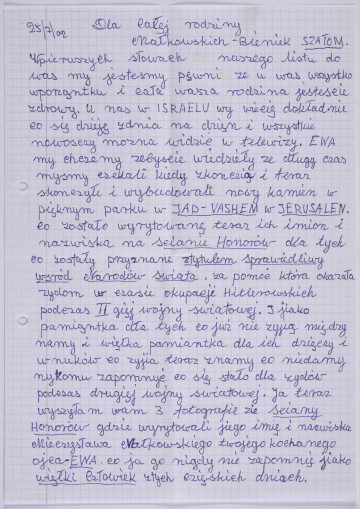 25/7/02 Dla całej rodziny
Małkowskich-Bieniek SZAŁOM.
Wpieruszych słowach naszego listu do
was my jestesmy pewni ze u was wszystko
wporząntku i cała wasza rodzina jestescie
zdrowy. U nas w ISRAELU wy wiecie dokładnie
co się dzieje zdnia na dzien i wszystkie
nowosczy mozna widzieć w telewizy. EWA
my chcemy zebyscie wiedziely ze długą czas
mysmy czekali kiedy zkonczią i teraz
skonczyli i wybudowali nowy kamien w
pięknym parku w JAD-VASHEM w JERUSALEN.
co zostało wyrytowane teras ich imion i
nazwiska na scianie Honorów dla tych
co zostały przyznane ztytulem sprawiedliwy
wsród Narodów swiata. za pomóc która okazała
zydom w czasie okupacje Hitlerowskich
podczas II giej wojny swiatowej. I jiako
pamiąntka dla tych co już nie zyją między
namy i więtka pamiantka dla ich dziecsy i
wnuków co zyjia teraz znamy co niedamy
nykomu zapomnyć co się stało dla zydów
podczas drugiej wojny swiatowej. Ja teraz
wyszłam wam 3 fotografie ze sciany
Honorów gdzie wyrytowali jego imię i nazwiska
Mieczysława Małkowskiego twojego kochanego
ojca-EWA. co ja go nigdy nie zapomnię jiako
więtki Człowiek ztych częszkich dniach.